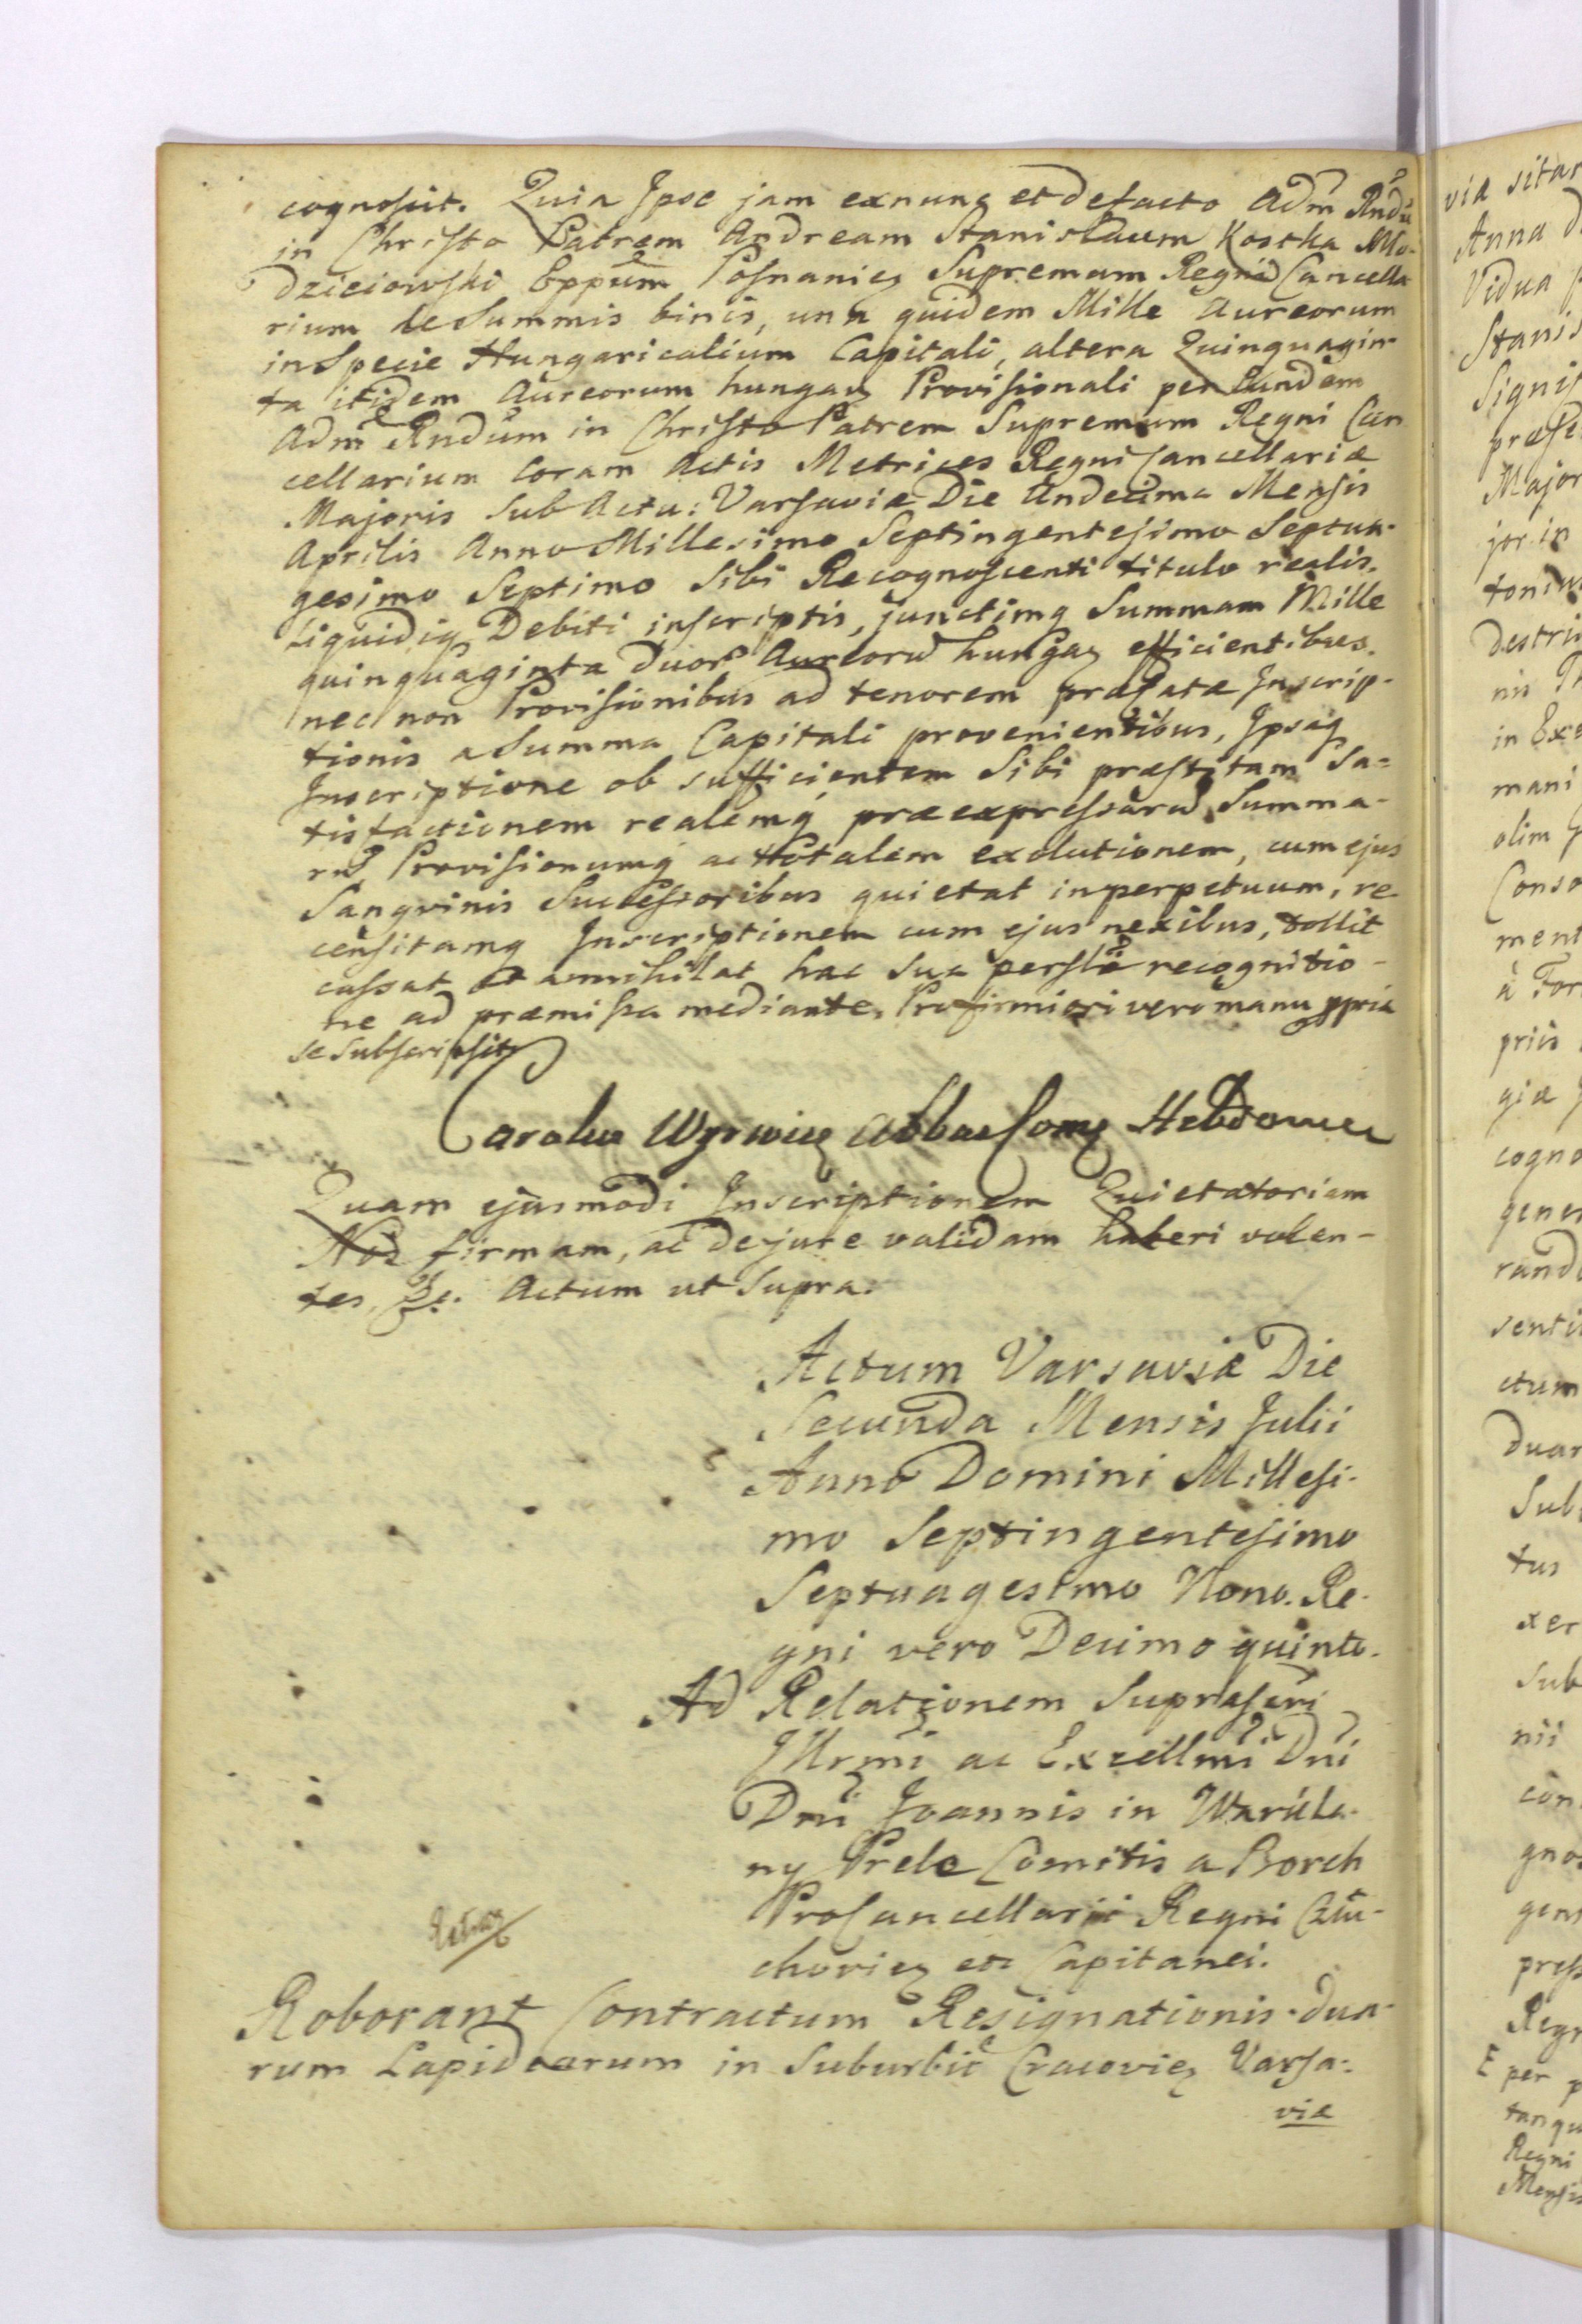 cognoscit. Quia Ipse jam exnunc et defacto Adm̃ Rndũ
in Christo Patrem Andream Stanislaum Kostka Mło-
dzieiowski Eppum Posnaniẽ Supremum Regni Cancella
rium de Summis binis, una quidem Mille Aureorum
in Specie Hungaricalium Capitali, altera Quinquagin-
ta itidem Aureorum hungar̃ Provisionali per Eundem
Adm̃ Rndum in Christo Patrem Supremum Regni Can
cellarium Coram Actis Metrices Regni Cancellariæ
Majoris sub Actu: Varsaviæ Die Undecima Mensis
Aprilis Anno Millesimo Septingentesimo Septua-
gesimo Septimo Sibi Recognoscenti titulo realis.
liquidiq Debiti inscriptis, junctimq Summam Mille
quinquaginta duor̃ Aureorũ hungar̃ efficientibus.
nec non Provisionibus ad tenorem præfatæ Inscrip-
tionis a Summa Capitali provenientibus, Ipsaq
Inscriptione ob sufficientem Sibi præstitam Sa=
tisfactionem realemq præexpressarũ Summa-
rũ Provisionumq ac totalem exolutionem, cum ejus
Sangvinis Successoribus quietat in perpetuum, re
censitamq Inscriptionem cum ejus nexibus, tollit
cassat et annihilat hac sua persl̃i recognitio-
ne ad præmissa mediante. Pro firmiori vero manu ppria
se subscripsit
Carolus Wyrwicz Abbas Comẽ Hebdowen
Quam ejusmodi Inscriptionem Quietatoriam
Nos firmam, ac de jure validam haberi volen-
tes, &c. Actum ut Supra.
Actum Varsaviæ Die
Secunda Mensis Julii
Anno Domini Millesi-
mo Septingentesimo
Septuagesimo Nono. Re-
gni vero Decimo quinto.
Ad Relationem Suprascri
Illrmi ac Excellmi Dni
Dni Joannis in Warkla-
ny Prele Comitis a Borch
ProCancellarii Regni Człu-
choviẽ etc Capitanei.
Roborant Contractum Resignationis dua-
rum Lapidearum in Suburbio Cracoviẽ Varsa:
viæ